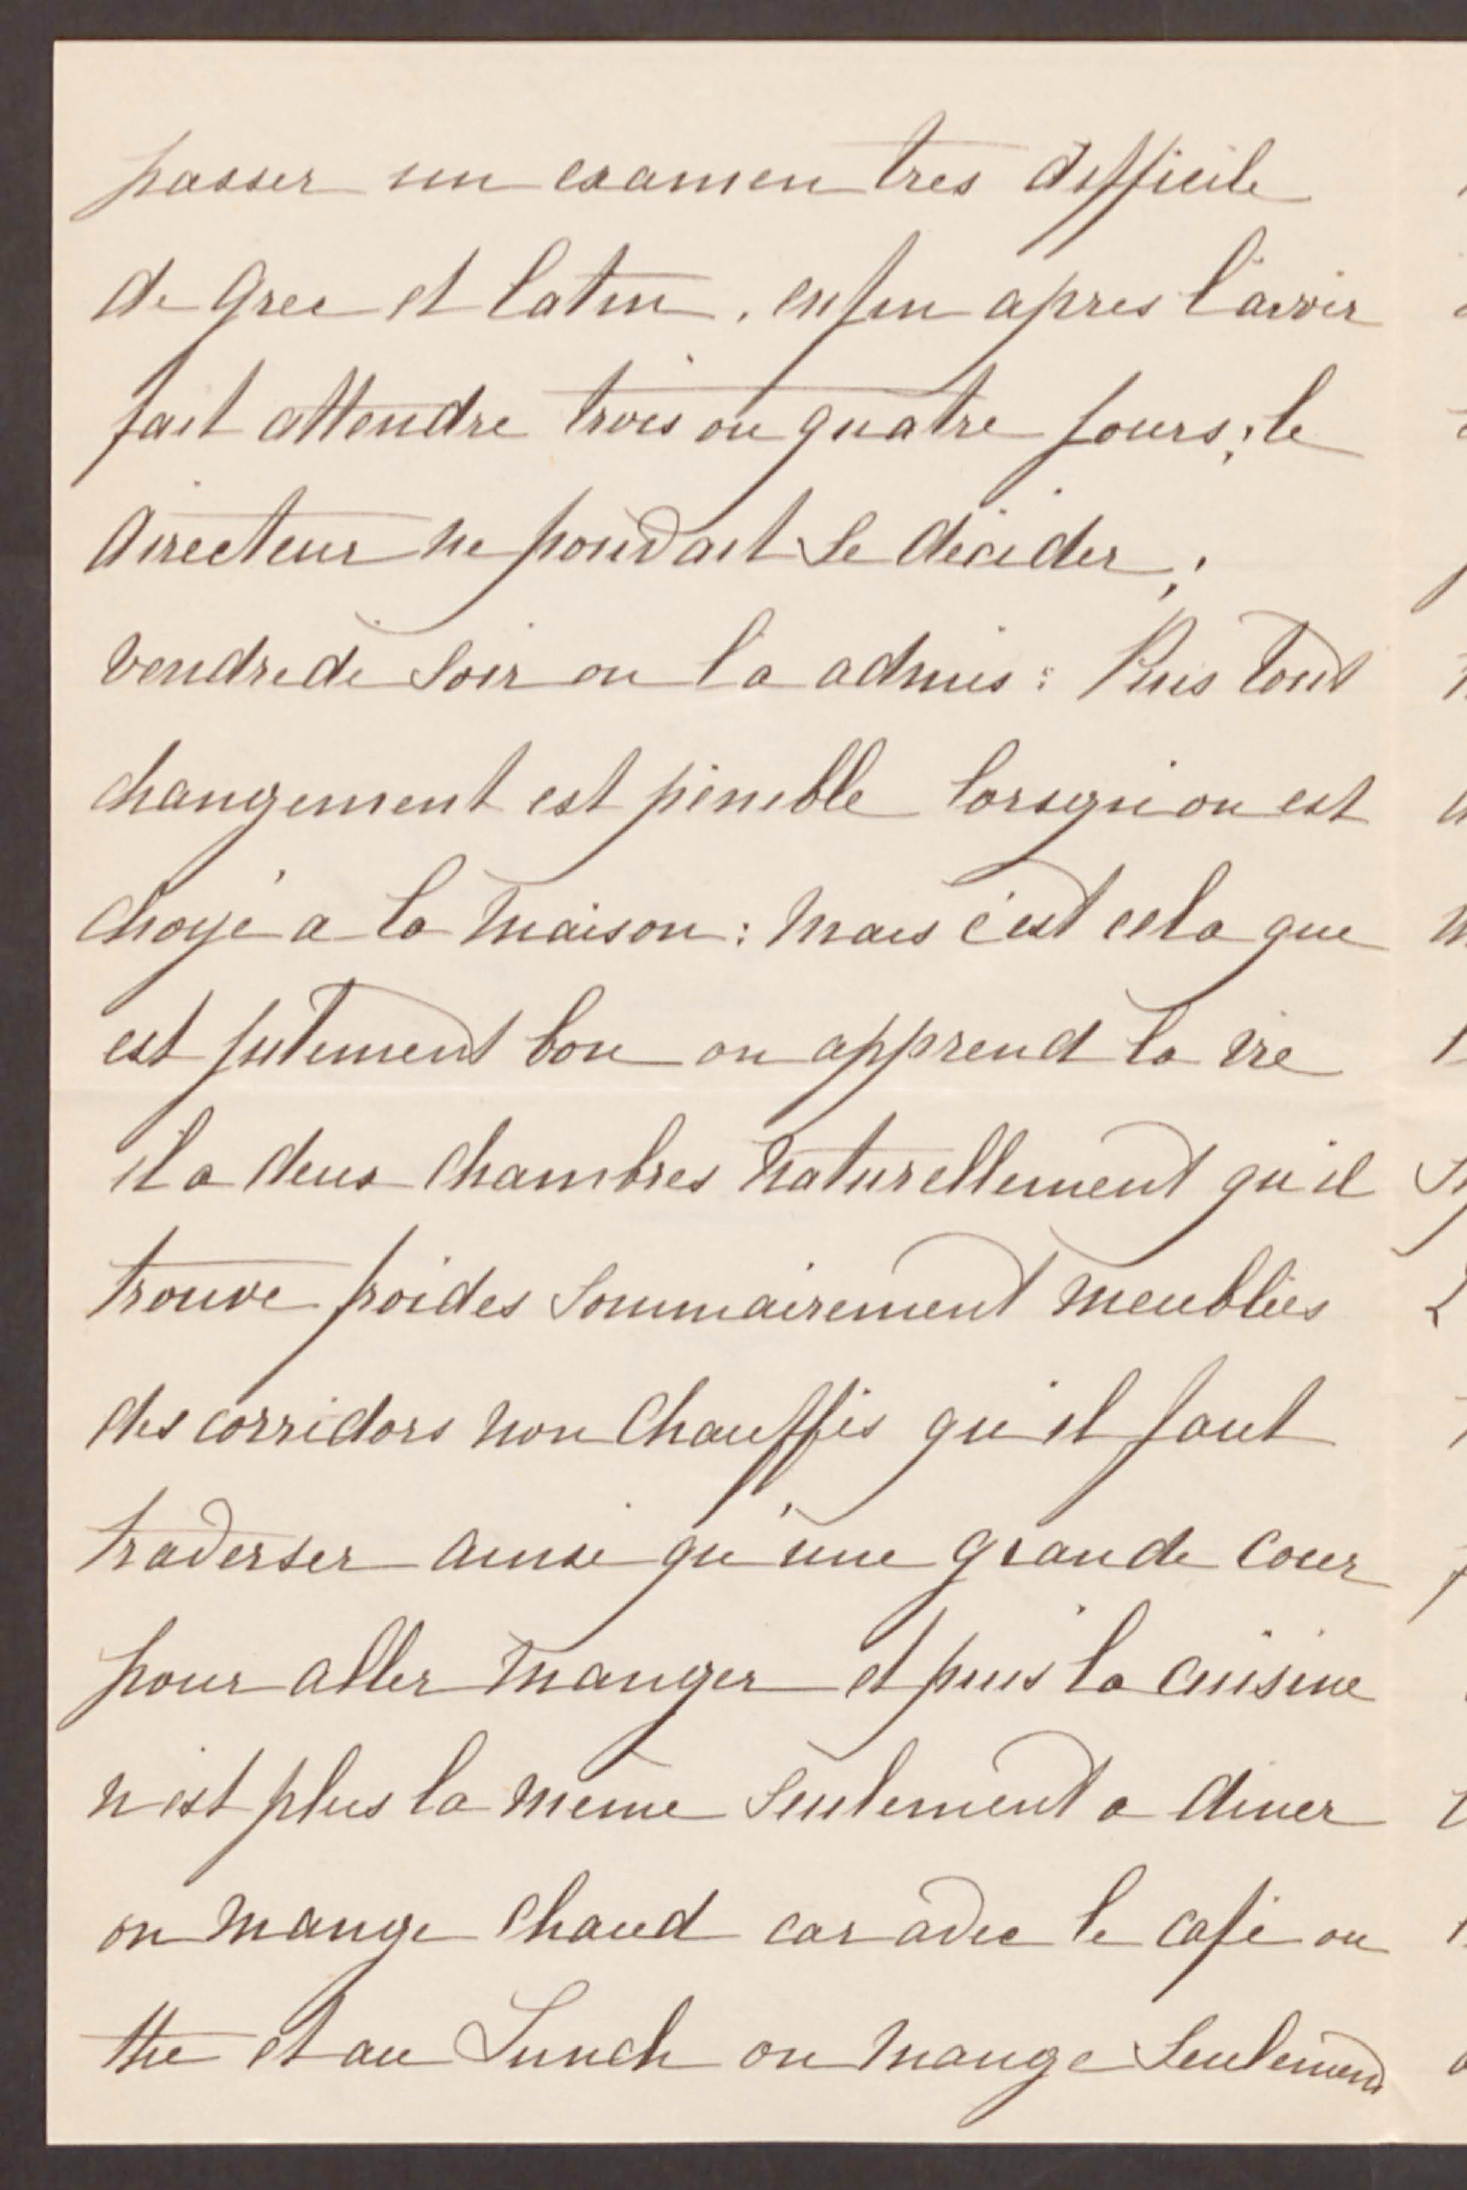 passer un examen tres difficile
de Grec et latin. enfin apres l'avoir
fait attendre trois ou quatre jours; le
directeur ne pouvait se decider;
vendredi soir on l'a admis: Puis tout
changement est pénible lorsqu'on est
choyé a la maison: mais c'est cela que
est jutement bon on apprend la vie
il a deux chambres naturellement qu'il
trouve froides sommairement meublées
des corridors non chauffés qu'il faut
traverser ainsi qu'une grande cour
pour aller manger et puis la cuisine
n'est plus la meme seulement a diner
on mange chaud car avec le café ou
thé et au Lunch on mange seulement